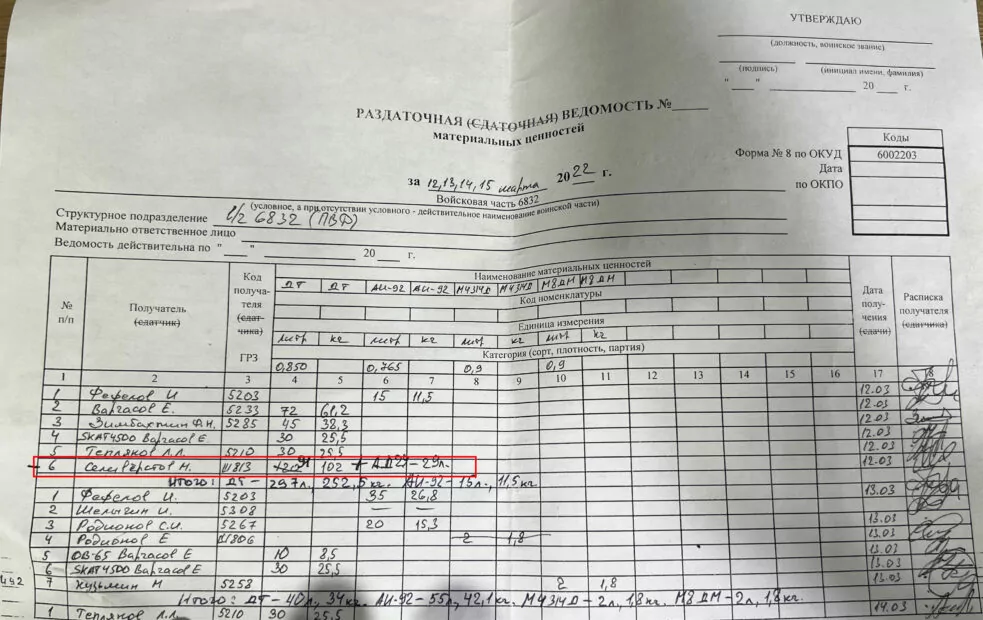 УТВЕРЖДАЮ
(должность, воинское звание)
(подпись) (инициал имени, фамилия)
" " 20 г.
РАЗДАТОЧНАЯ (СДАТОЧНАЯ) ВЕДОМОСТЬ №
материальных ценностей
Коды
Форма № 8 по ОКУД 6002203
Дата
по ОКПО
за 12,13,14,15 марта 2022 г.
Войсковая часть 6832
(условное, а при отсутствии условного - действительное наименование воинской части)
Структурное подразделение в/ч 6832 (ПВД)
Материально ответственное лицо
Ведомость действительна по " " 20 г.
№ п/п
Получатель (сдатчик)
Код получателя (сдатчика) ГРЗ
Наименование материальных ценностей
ДТ ДТ АИ-92 АИ-92 М43/4Д М43/4Д М8ДМ М8ДМ
Код номенклатуры
Единица измерения
литр кг литр кг литр кг литр кг
Категория (сорт, плотность, партия)
0,850 0,765 0,9 0,9
Дата получения (сдачи)
Расписка получателя (сдатчика)
1 2 3 4 5 6 7 8 9 10 11 12 13 14 15 16 17 18
1 Фефелов И 5203 15 11,5 12.03
2 Варгасов Е. 5233 72 61,2 12.03
3 5285 45 38,3 12.03
4 SKAT4500 Варгасов Е. 30 25,5 12.03
5 Тепляков Л.Л. 5210 30 25,5 12.03
6 Селивёрстов Н. 102 12.03
Итого: ДТ - 297л, 252,5кг. АИ-92 - 15л., 11,5 кг.
1 Фефелов И. 5203 35 26,8 13.03
2 Шелыгин И. 5308 — —
3 Родионов С.И. 5267 20 15,3 13.03
4 Родионов Е 2 1,8 13.03
5 ОВ-65 Варгасов Е 10 8,5 13.03
6 SKAT4500 Варгасов Е. 30 25,5 13.03
7 Кузьмин М 5258 2 1,8 13.03
Итого: ДТ - 40л, 34кг. АИ-92 - 55л, 42,1кг. М43/4Д - 2л, 1,8кг. М8ДМ - 2л, 1,8кг.
1 Тепляков Л.Л. 5210 30 25,5 14.03